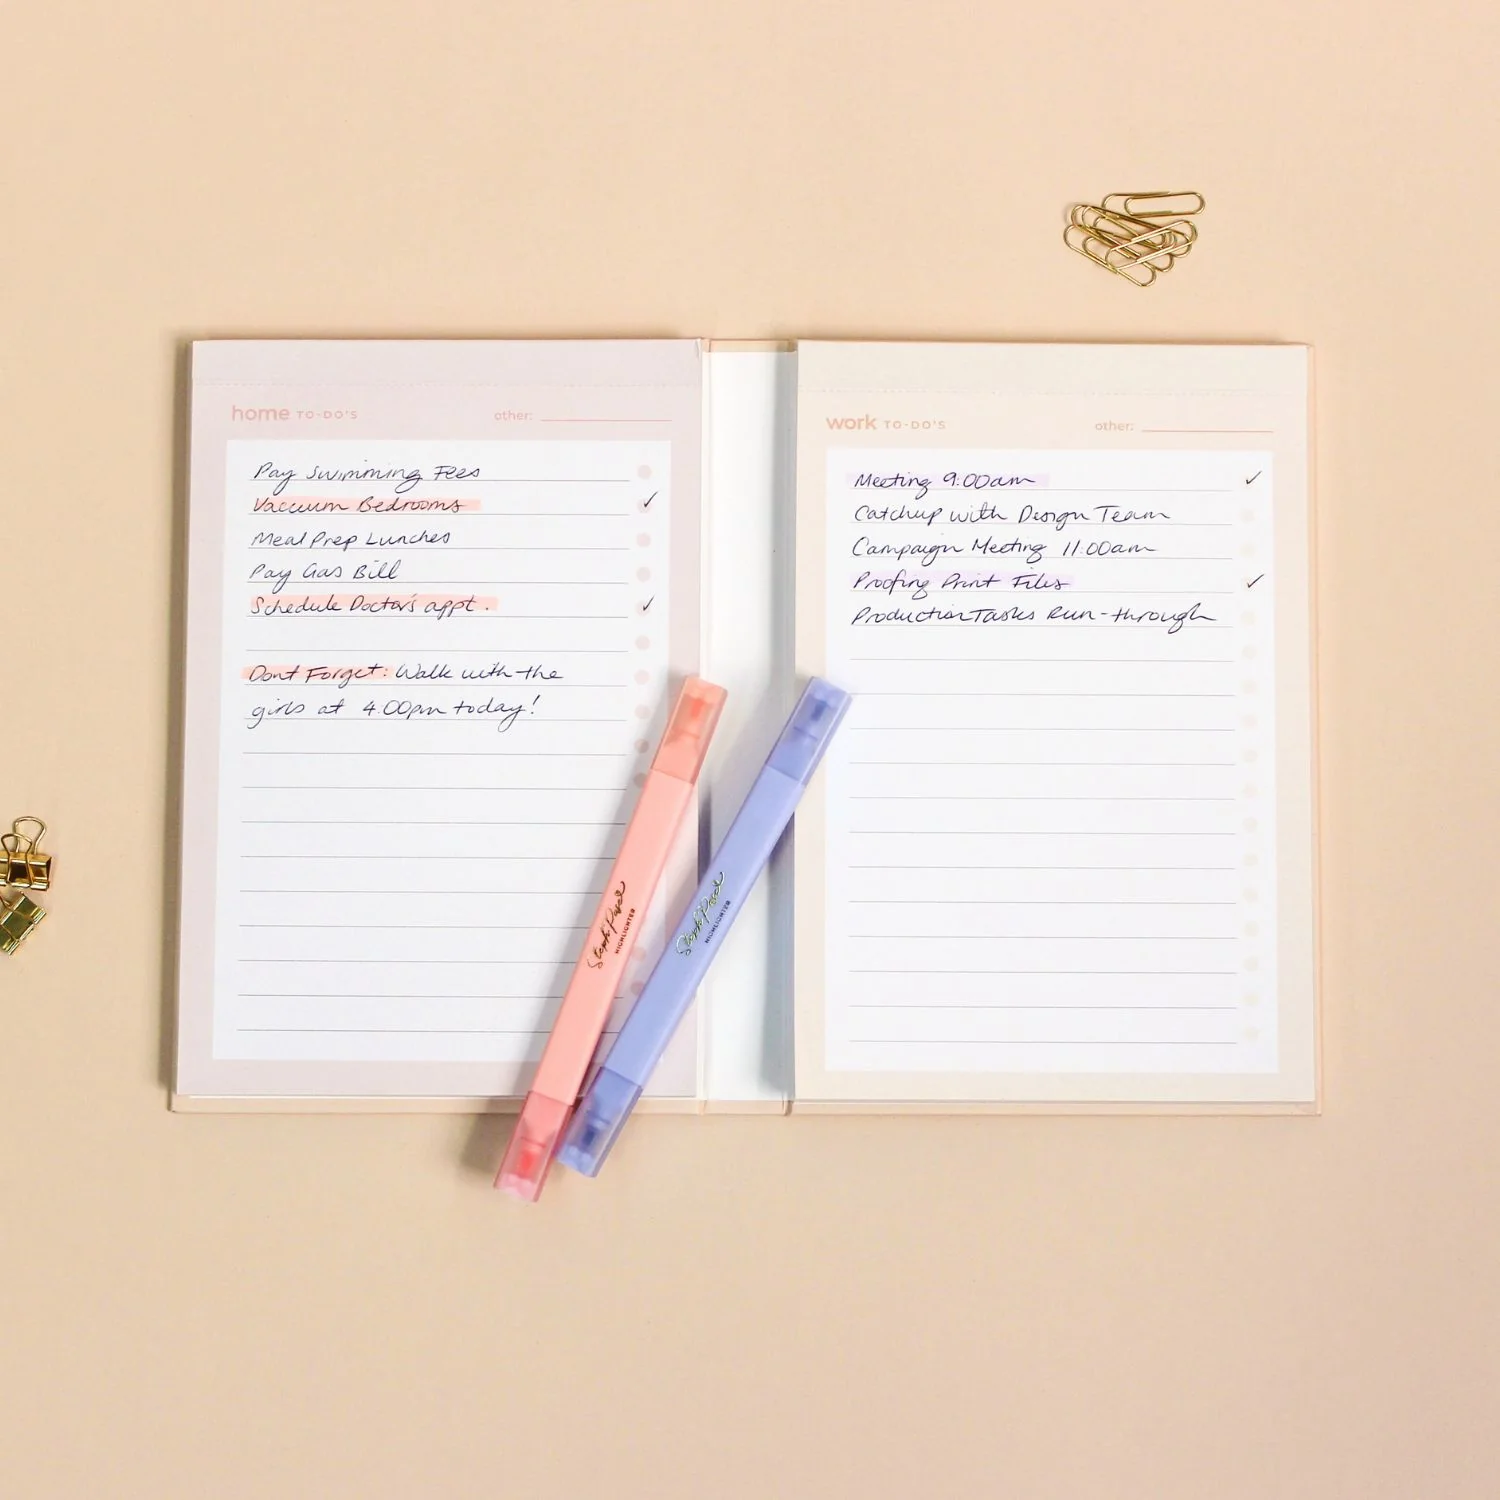 home TO-DO'S other:
Pay Swimming Fees
Vacuum Bedrooms
Meal Prep Lunches
Pay Gas Bill
Schedule Doctor's appt.
Dont Forget: Walk with the
girls at 4.00pm today!
work TO-DO'S other:
Meeting 9:00am
Catchup with Design Team
Campaign Meeting 11:00am
Proofing Print Files
Production Tasks Run-through
Steph Pase
HIGHLIGHTER
Steph Pase
HIGHLIGHTER